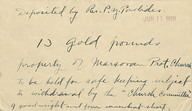 Deposited by Rev. P.
JUN 11
13 gold pounds
property of Marsovan Prot. Church
to be held for safe keeping subject
to withdrawal by the "Church Committee"